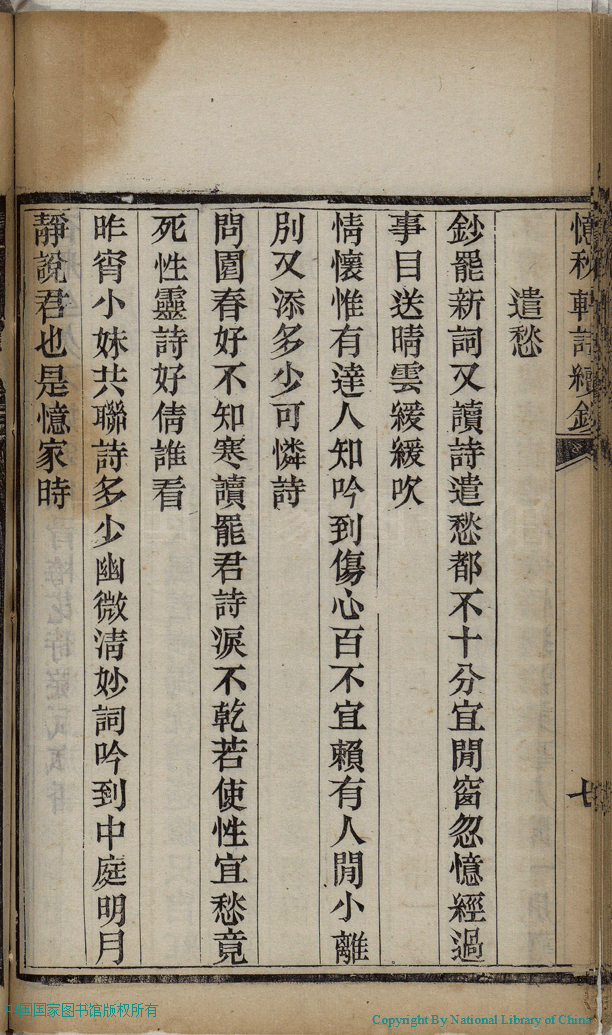 憶秋軒詩續鈔
七
遣愁
鈔罷新詞又讀詩遣愁都不十分宜閒窗忽憶經過
事目送晴雲緩緩吹
情懷惟有達人知吟到傷心百不宜賴有人閒小離
別又添多少可憐詩
問園春好不知寒讀罷君詩淚不乾若使性宜愁竟
死性靈詩好倩誰看
昨宵小妹共聯詩多少幽微淸妙詞吟到中庭明月
靜說君也是憶家時
中国国家图书馆版权所有
Copyright By National Library of China